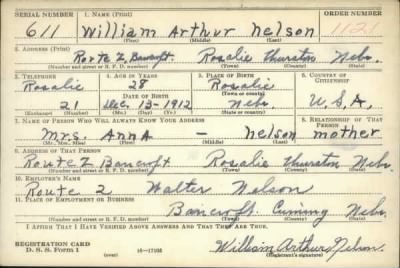 SERIAL NUMBER 1. NAME (Print) ORDER NUMBER
611 William Arthur Nelson 1121
(First) (Middle) (Last)
2. ADDRESS (Print)
Route 2, Bancroft. Rosalie Thurston Nebr.
(Number and street or R. F. D. number) (Town) (County) (State)
3. TELEPHONE 4. AGE IN YEARS 5. PLACE OF BIRTH 6. COUNTRY OF CITIZENSHIP
Rosalie 28 Rosalie
DATE OF BIRTH (Town or county)
21 Dec. 13-1912 Nebr. U.S.A.
(Exchange) (Number) (Mo.) (Day) (Yr.) (State or country)
7. NAME OF PERSON WHO WILL ALWAYS KNOW YOUR ADDRESS 8. RELATIONSHIP OF THAT PERSON
Mrs. Anna - Nelson mother
(Mr., Mrs., Miss) (First) (Middle) (Last)
9. ADDRESS OF THAT PERSON
Route 2 Bancroft Rosalie Thurston Nebr.
(Number and street or R. F. D. number) (Town) (County) (State)
10. EMPLOYER'S NAME
Route 2 Walter Nelson
11. PLACE OF EMPLOYMENT OR BUSINESS
Bancroft. Cuming Nebr.
(Number and street or R. F. D. number) (Town) (County) (State)
I AFFIRM THAT I HAVE VERIFIED ABOVE ANSWERS AND THAT THEY ARE TRUE.
REGISTRATION CARD
D. S. S. Form 1 16-17105 William Arthur Nelson.
(over) (Registrant's signature)